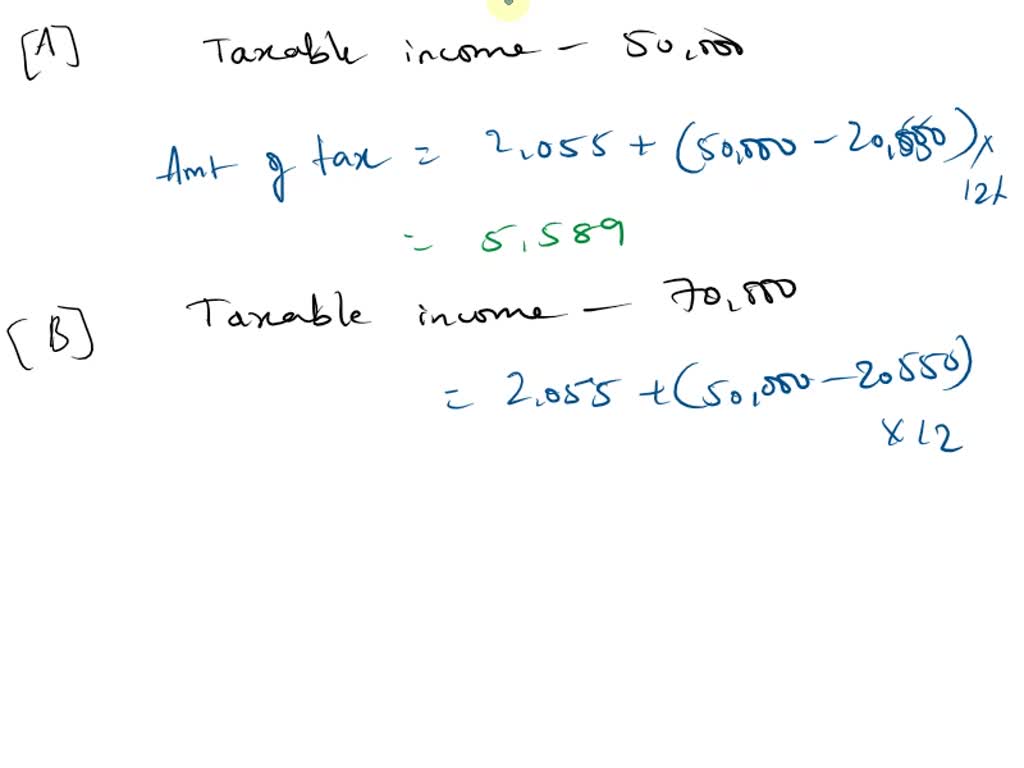 [A] Taxable income - 50,000
Amt of tax = 2,055 + (50,000 - 20,550) x
12%
= 5,589
[B] Taxable income - 70,000
= 2,055 + (50,000 - 20550)
x 12